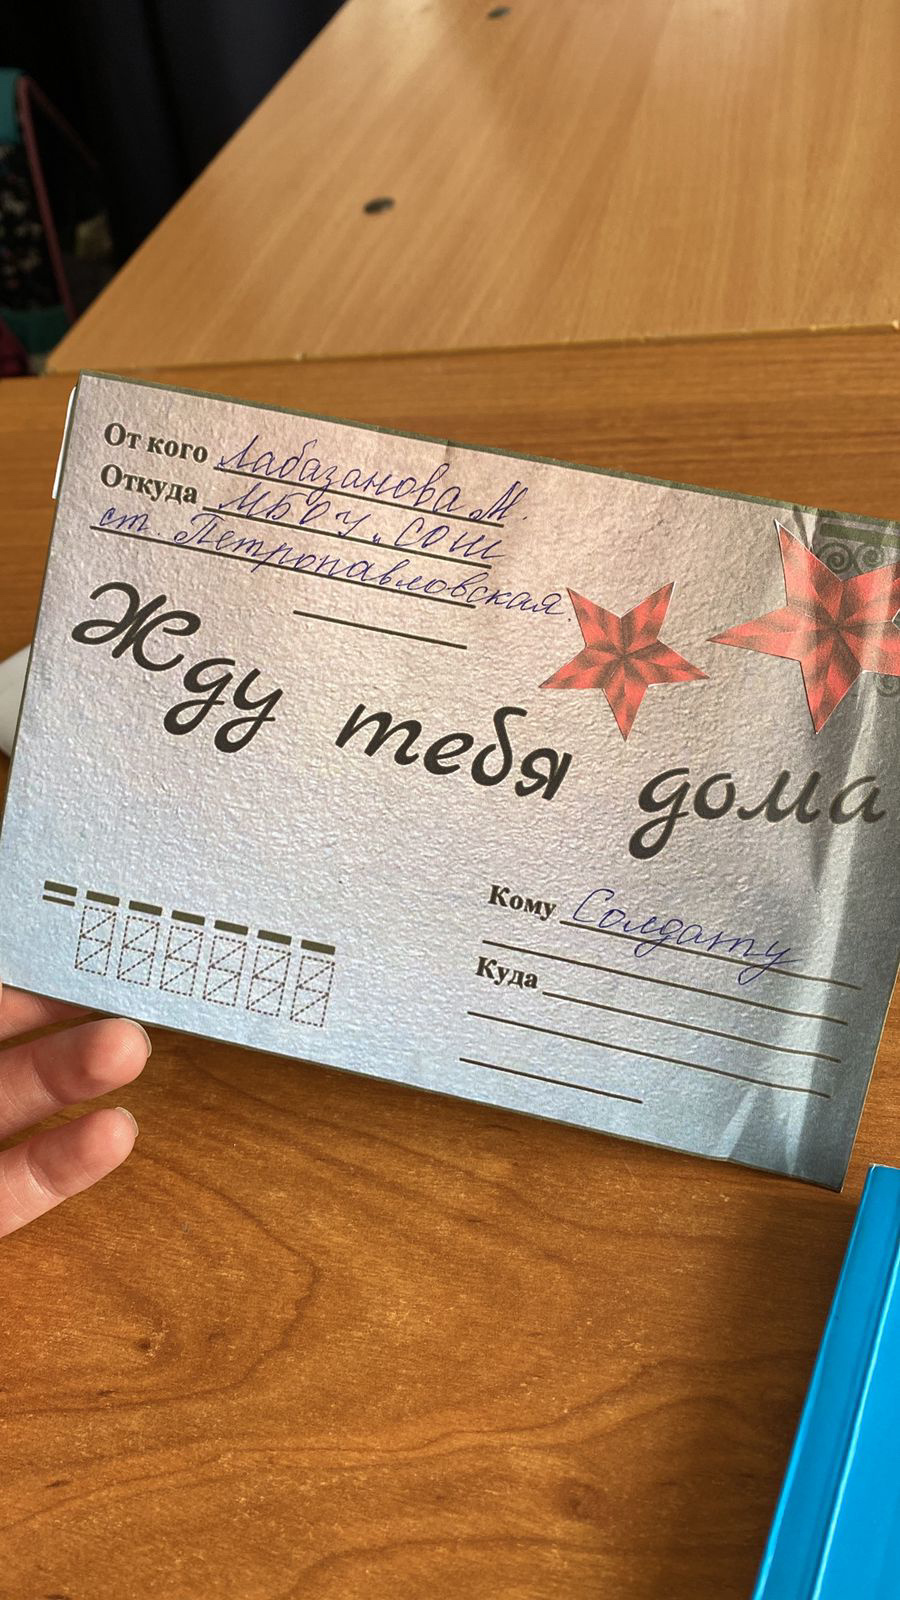 От кого Лабазанова М.
Откуда МБОУ „СОШ
ст. Петропавловская.
Жду тебя дома
Кому Солдату
Куда